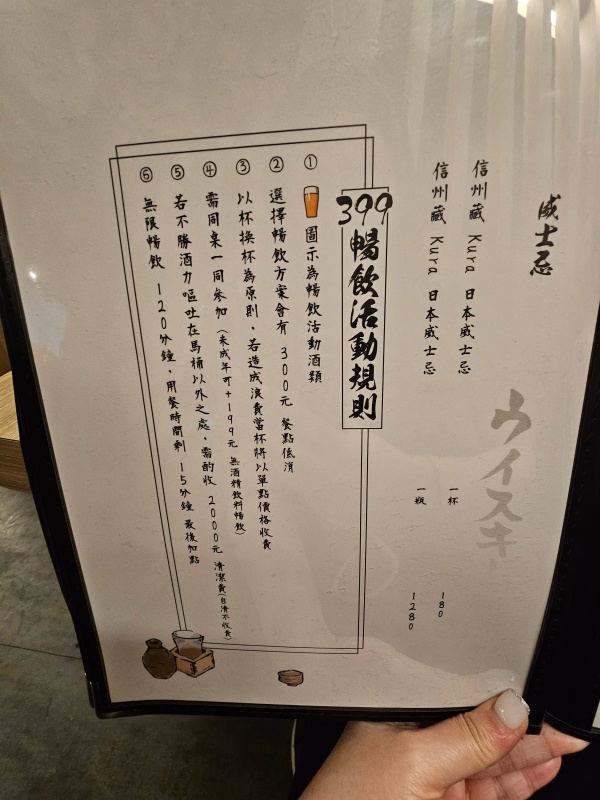 威士忌
ウイスキー
信州藏 Kura 日本威士忌 一杯 180
信州藏 Kura 日本威士忌 一瓶 1280
399暢飲活動規則
① 圖示為暢飲活動酒類
② 選擇暢飲方案會有 300元 餐點低消
③ 以杯換杯為原則，若造成浪費當杯將以單點價格收費
④ 需同桌一同參加（未成年可+199元 無酒精飲料暢飲）
⑤ 若不勝酒力嘔吐在馬桶以外之處，需酌收 2000元 清潔費(自清不收費)
⑥ 無限暢飲 120分鐘，用餐時間剩 15分鐘 最後加點